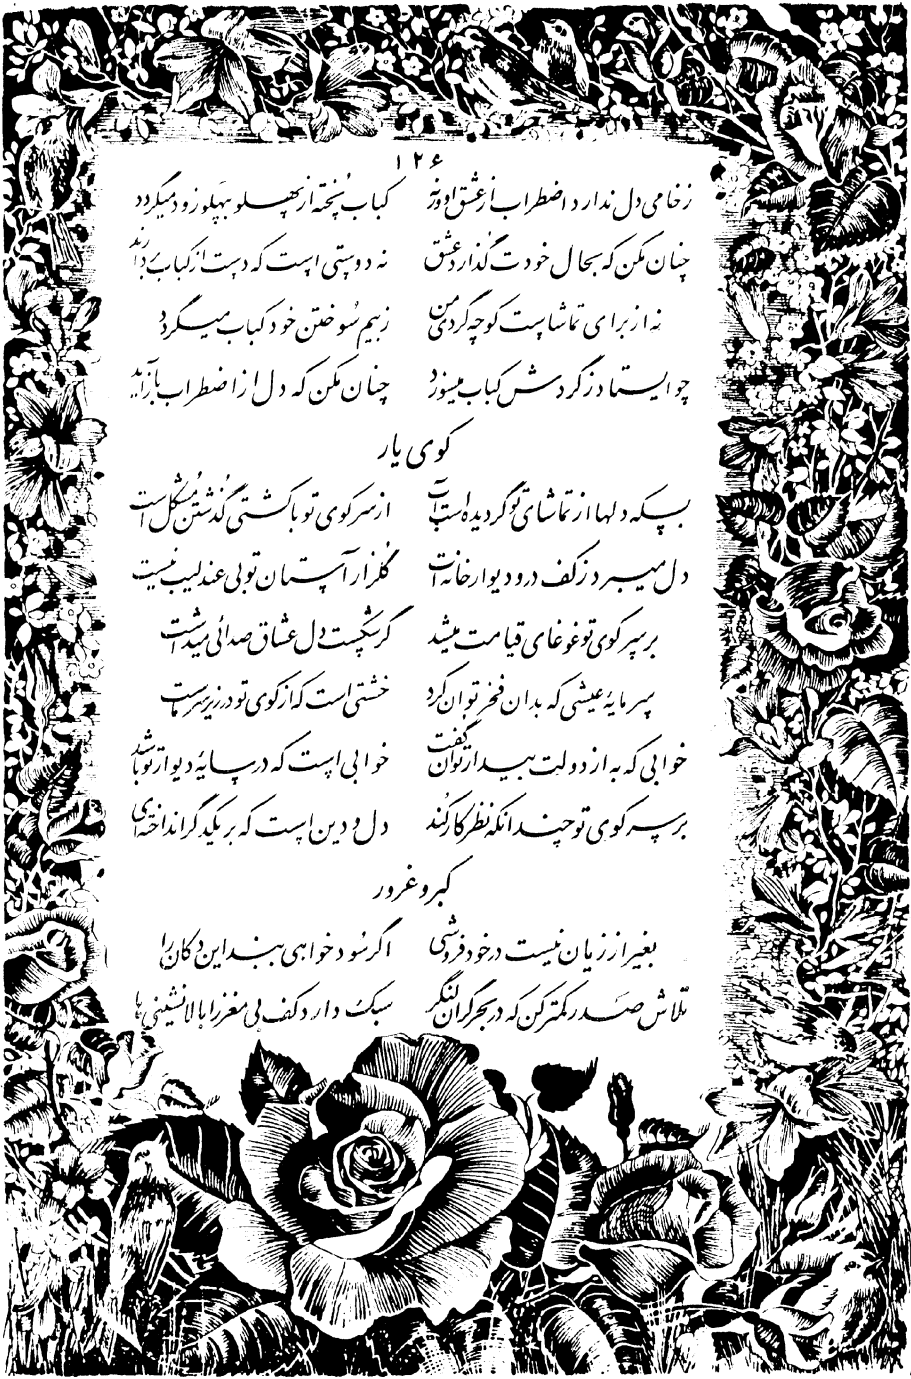 ۱۲۶
زخامی دل ندارد اضطراب از عشق او ورنه کباب پخته از پهلو بپهلو زود میگردد
چنان مکن که بحال خودت گذارد عشق نه دوستی است که دست از کباب بردارند
نه از برای تماشاست کوچه گردی من زبیم سوختن خود کباب میگردد
چو ایستاد ز گردش کباب میسوزد چنان مکن که دل از اضطراب بازآید
کوی یار
بسکه دلها از تماشای تو گردیده است آب از سر کوی تو با کشتی گذشتن مشکل است
دل میبرد ز کف در و دیوار خانه‌ات گلزار آستان تو بی عندلیب نیست
بر سر کوی تو غوغای قیامت میشد گر شکست دل عشاق صدائی میداشت
سرمایهٔ عیشی که بدان فخر توان کرد خشتی است که از کوی تو در زیر سر ماست
خوابی که به از دولت بیدار توان گفت خوابی است که در سایهٔ دیوار تو باشد
بر سر کوی تو چندانکه نظر کار کند دل و دین است که بر یکدگر انداخته‌ای
کبر و غرور
بغیر از زیان نیست در خود فروشی اگر سود خواهی ببند این دکان را
تلاش صدر کمتر کن که در بحر گران لنگر سبک دارد کف بی مغز را بالانشینی‌ها